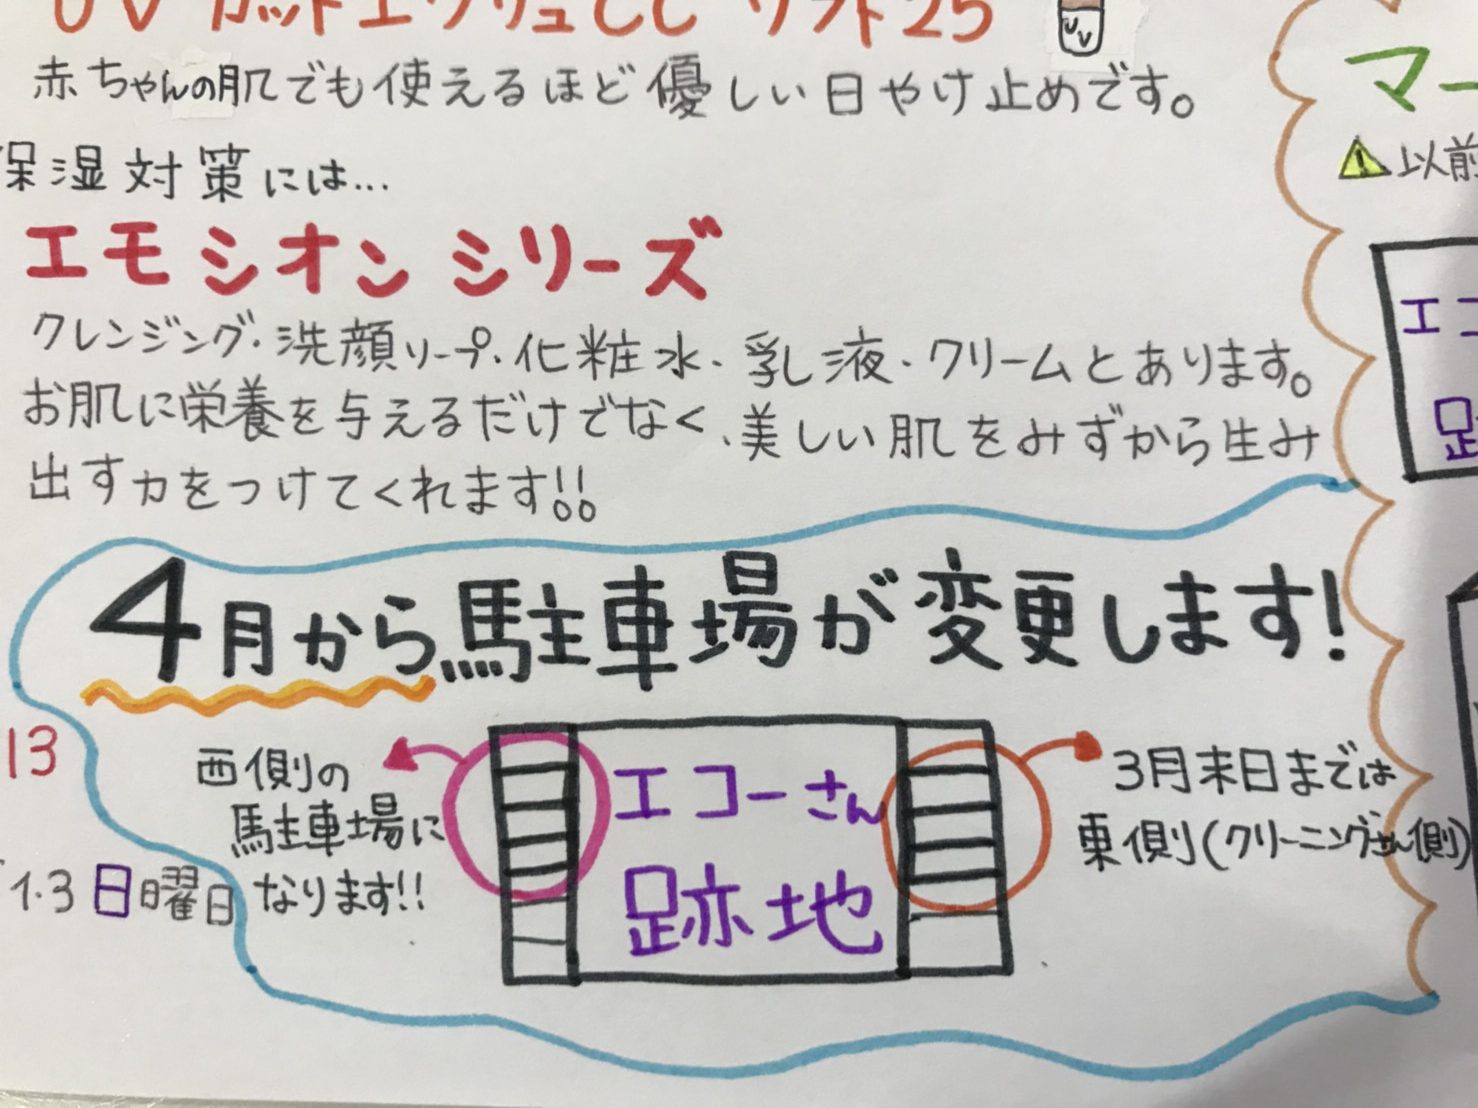 UVカットエクリュCC ソフト25
UV
赤ちゃんの肌でも使えるほど優しい日やけ止めです。
保湿対策には…
エモシオンシリーズ
クレンジング・洗顔ソープ・化粧水・乳液・クリームとあります。
お肌に栄養を与えるだけでなく、美しい肌をみずから生み
出す力をつけてくれます!!
4月から駐車場が変更します!
西側の
駐車場に
なります!!
エコーさん
跡地
3月末日までは
東側(クリーニングさん側)
13
1・3日曜日
マー
以前
エコ
跡